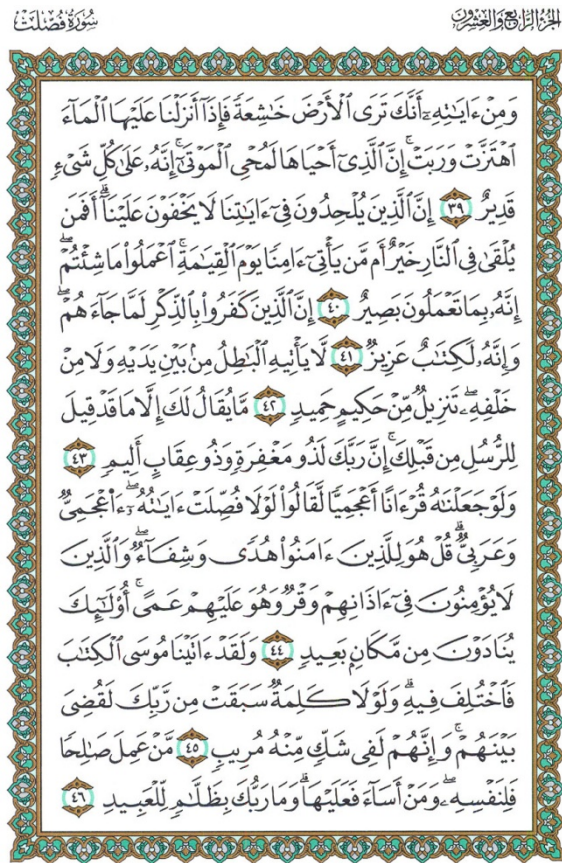 الجزء الرابع والعشرون
سورة فصلت
وَمِنْ ءَايَٰتِهِۦٓ أَنَّكَ تَرَى ٱلْأَرْضَ خَٰشِعَةً فَإِذَآ أَنزَلْنَا عَلَيْهَا ٱلْمَآءَ
ٱهْتَزَّتْ وَرَبَتْ ۚ إِنَّ ٱلَّذِىٓ أَحْيَاهَا لَمُحْىِ ٱلْمَوْتَىٰٓ ۚ إِنَّهُۥ عَلَىٰ كُلِّ شَىْءٍ
قَدِيرٌ ٣٩ إِنَّ ٱلَّذِينَ يُلْحِدُونَ فِىٓ ءَايَٰتِنَا لَا يَخْفَوْنَ عَلَيْنَآ ۗ أَفَمَن
يُلْقَىٰ فِى ٱلنَّارِ خَيْرٌ أَم مَّن يَأْتِىٓ ءَامِنًا يَوْمَ ٱلْقِيَٰمَةِ ۚ ٱعْمَلُوا۟ مَا شِئْتُمْ ۖ
إِنَّهُۥ بِمَا تَعْمَلُونَ بَصِيرٌ ٤٠ إِنَّ ٱلَّذِينَ كَفَرُوا۟ بِٱلذِّكْرِ لَمَّا جَآءَهُمْ ۖ
وَإِنَّهُۥ لَكِتَٰبٌ عَزِيزٌ ٤١ لَّا يَأْتِيهِ ٱلْبَٰطِلُ مِنۢ بَيْنِ يَدَيْهِ وَلَا مِنْ
خَلْفِهِۦ ۖ تَنزِيلٌ مِّنْ حَكِيمٍ حَمِيدٍ ٤٢ مَّا يُقَالُ لَكَ إِلَّا مَا قَدْ قِيلَ
لِلرُّسُلِ مِن قَبْلِكَ ۚ إِنَّ رَبَّكَ لَذُو مَغْفِرَةٍ وَذُو عِقَابٍ أَلِيمٍ ٤٣
وَلَوْ جَعَلْنَٰهُ قُرْءَانًا أَعْجَمِيًّا لَّقَالُوا۟ لَوْلَا فُصِّلَتْ ءَايَٰتُهُۥٓ ۖ ءَا۬عْجَمِىٌّ
وَعَرَبِىٌّ ۗ قُلْ هُوَ لِلَّذِينَ ءَامَنُوا۟ هُدًى وَشِفَآءٌ ۖ وَٱلَّذِينَ
لَا يُؤْمِنُونَ فِىٓ ءَاذَانِهِمْ وَقْرٌ وَهُوَ عَلَيْهِمْ عَمًى ۚ أُو۟لَٰٓئِكَ
يُنَادَوْنَ مِن مَّكَانٍۭ بَعِيدٍ ٤٤ وَلَقَدْ ءَاتَيْنَا مُوسَى ٱلْكِتَٰبَ
فَٱخْتُلِفَ فِيهِ ۗ وَلَوْلَا كَلِمَةٌ سَبَقَتْ مِن رَّبِّكَ لَقُضِىَ
بَيْنَهُمْ ۚ وَإِنَّهُمْ لَفِى شَكٍّ مِّنْهُ مُرِيبٍ ٤٥ مَّنْ عَمِلَ صَٰلِحًا
فَلِنَفْسِهِۦ ۖ وَمَنْ أَسَآءَ فَعَلَيْهَا ۗ وَمَا رَبُّكَ بِظَلَّٰمٍ لِّلْعَبِيدِ ٤٦